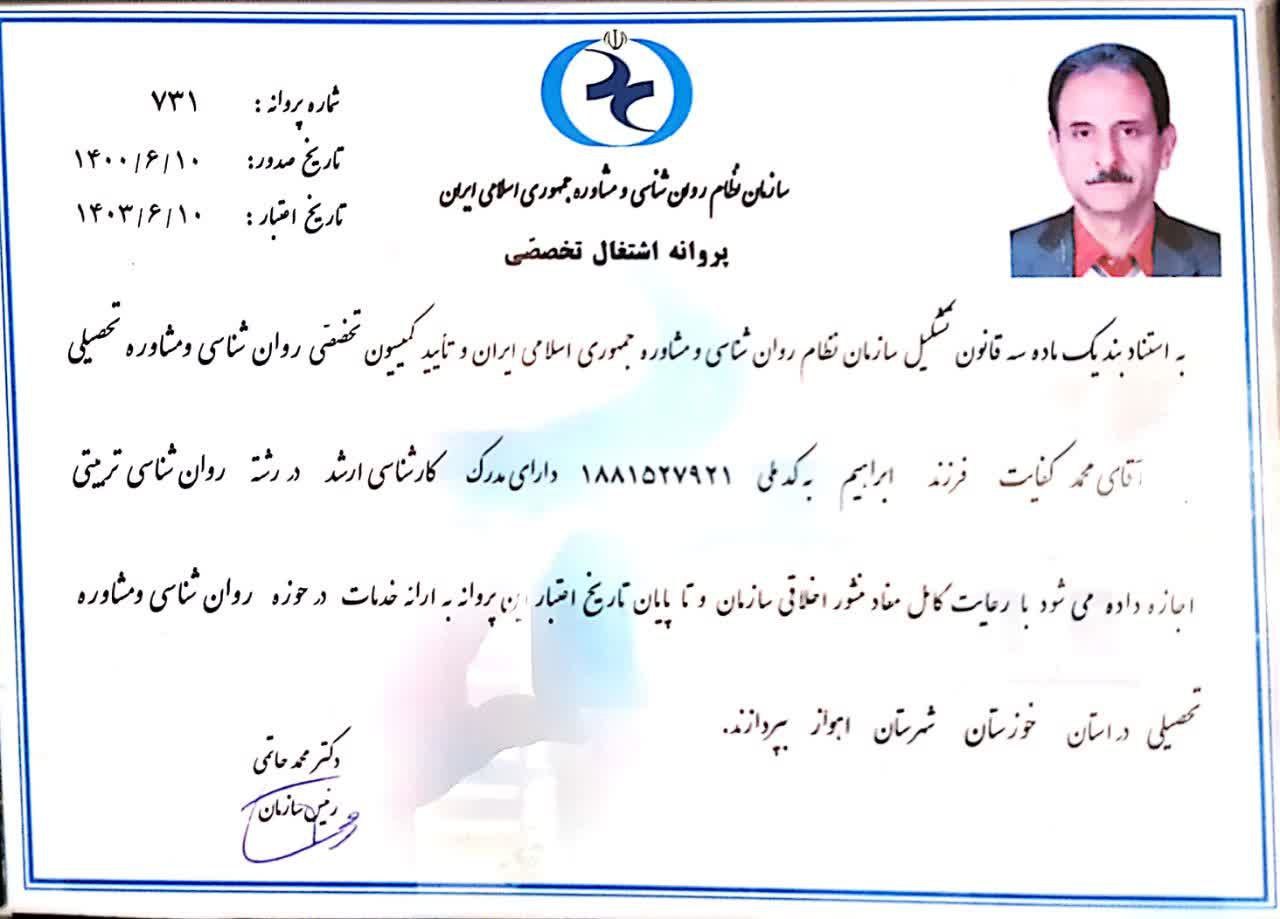 شماره پروانه : ۷۳۱
تاریخ صدور: ۱۴۰۰/۶/۱۰
تاریخ اعتبار : ۱۴۰۳/۶/۱۰
سازمان نظام روان شناسی و مشاوره جمهوری اسلامی ایران
پروانه اشتغال تخصصّی
به استناد بند یک ماده سه قانون تشکیل سازمان نظام روان شناسی و مشاوره جمهوری اسلامی ایران و تأیید کمیسیون تخصصّی روان شناسی ومشاوره تحصیلی
آقای محمد کفایت فرزند ابراهیم به کد ملی ۱۸۸۱۵۲۷۹۲۱ دارای مدرک کارشناسی ارشد در رشته روان شناسی تربیتی
اجازه داده می شود با رعایت کامل مفاد منشور اخلاقی سازمان و تا پایان تاریخ اعتبار این پروانه به ارائه خدمات در حوزه روان شناسی ومشاوره
تحصیلی در استان خوزستان شهرستان اهواز بپردازند.
دکتر محمد حاتمی
رئیس سازمان